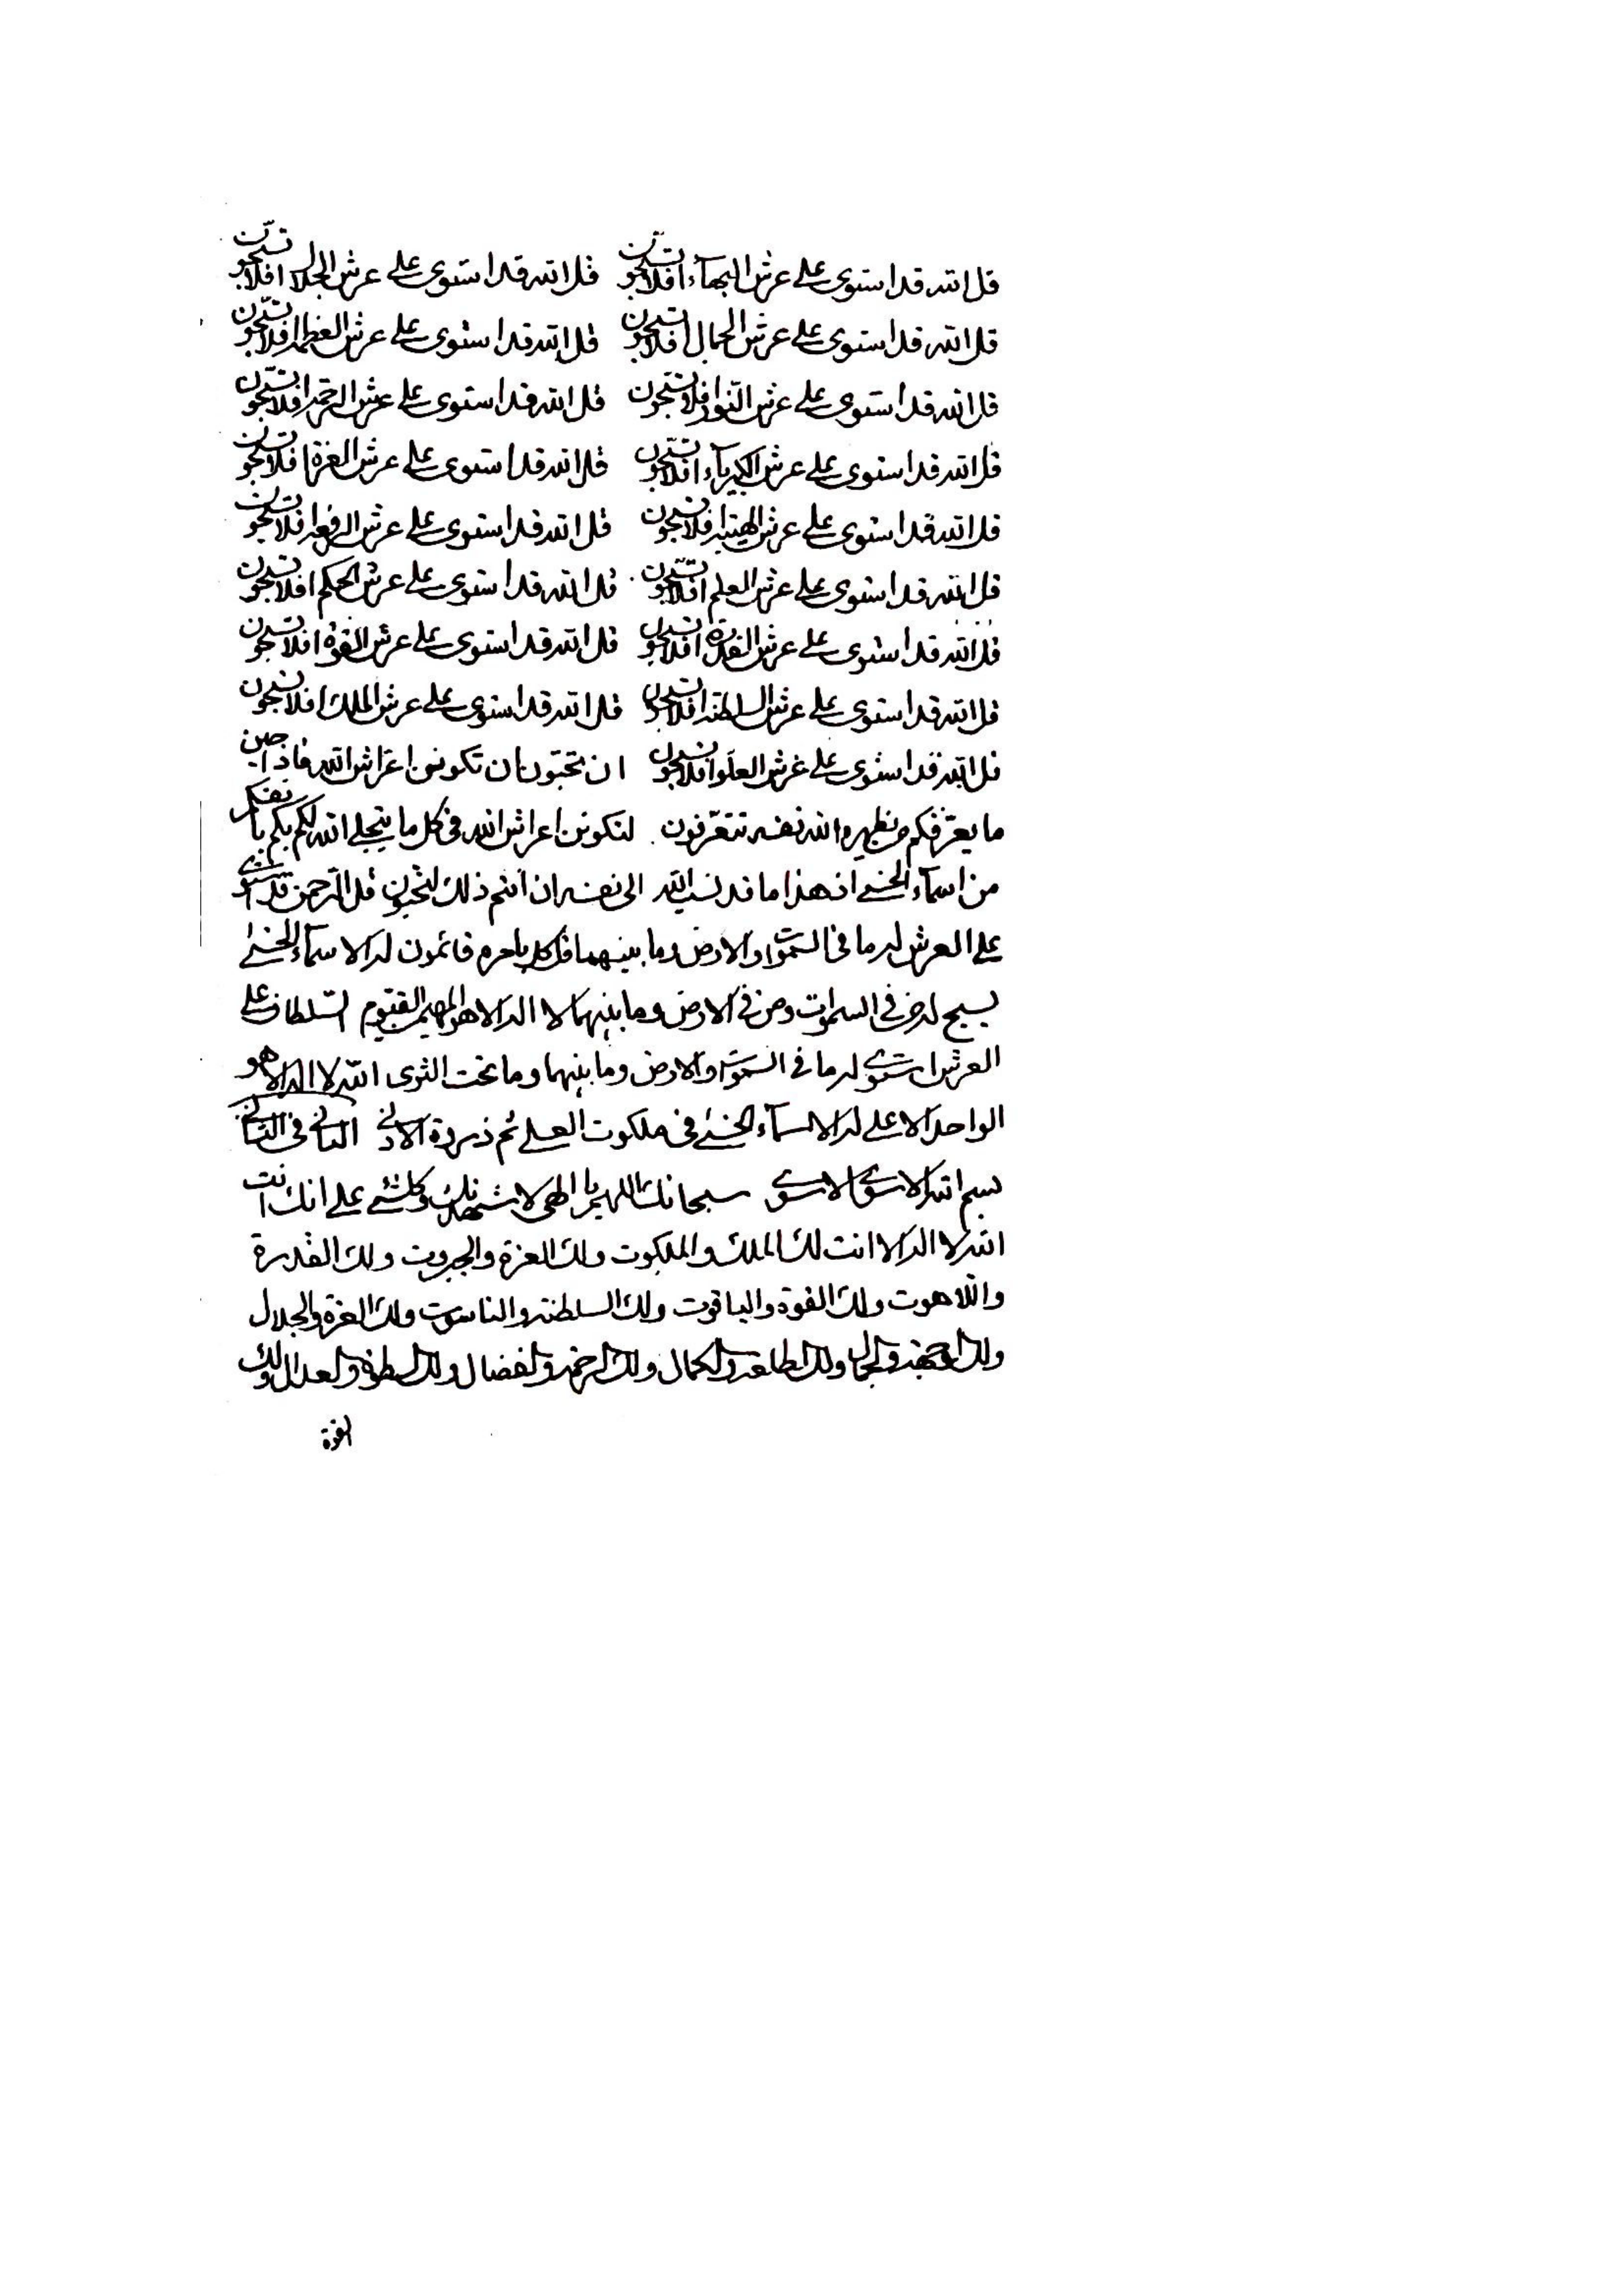 قل الله قد استوى على عرش البهآء افلا تستحبون قل الله قد استوى على عرش الجلال افلا تستحبون
قل الله قد استوى على عرش الجمال افلا تستحبون قل الله قد استوى على عرش العظمة افلا تستحبون
قل الله قد استوى على عرش النور افلا تستحبون قل الله قد استوى على عرش الرحمة افلا تستحبون
قل الله قد استوى على عرش الكبريآء افلا تستحبون قل الله قد استوى على عرش العزة افلا تستحبون
قل الله قد استوى على عرش الهيبة افلا تستحبون قل الله قد استوى على عرش الرفعة افلا تستحبون
قل الله قد استوى على عرش العلم افلا تستحبون قل الله قد استوى على عرش الحكم افلا تستحبون
قل الله قد استوى على عرش القدرة افلا تستحبون قل الله قد استوى على عرش القوة افلا تستحبون
قل الله قد استوى على عرش السلطنة افلا تستحبون قل الله قد استوى على عرش الملك افلا تستحبون
قل الله قد استوى على عرش العلو افلا تستحبون ان تحبون ان تكونن اعراش الله فاذا حين
ما يعرفكم من يظهره الله نفسه تتعرفون لتكونن اعراش الله في كل ما يتجلى الله لكم بكم بانفسكم
من اسمآء الحسنى ان هذا ما قد نسب الله الى نفسه ان انتم ذلك لتحبون قل الرحمن قد استوى
على العرش له ما في السموات والارض وما بينهما قل كل بامره قائمون له الاسمآء الحسنى
يسبح له من في السموات ومن في الارض وما بينهما لا اله الا هو المهيمن القيوم السلطان على
العرش استوى له ما في السموات والارض وما بينهما وما تحت الثرى الله لا اله الا هو
الواحد الاعلى له الاسمآء الحسنى في ملكوت العلى ثم ذروة الادنى الثاني في الثاني
بسم الله الاسوى الاسوى سبحانك اللهم يا الهي لاشهدنك وكلشئ على انك انت
الله لا اله الا انت لك الملك والملكوت ولك العزة والجبروت ولك القدرة
واللاهوت ولك القوة والياقوت ولك السلطنة والناسوت ولك العزة والجلال
ولك الوجهة والجمال ولك الطلعة والكمال ولك الرحمة والفضال ولك السطوة والعدال ولك
القوة